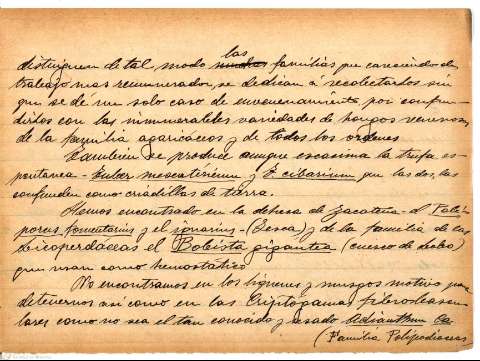 las
distinguen de tal modo muchas familias que careciendo de
trabajo mas remunerador, se dedican a recolectarlos sin
que se de un solo caso de envenenamiento por confun-
dirlos con las innumerables variedades de hongos venenosos
de la familia agaricáceos y de todos los ordenes
Tambien se produce aunque escasisima la trufa es-
pontanea - Tuber mesentericum y T. cibarium que las dos, las
confunden como criadillas de tierra.
Hemos encontrado en la dehesa de Zacatena - el Poli-
porus fomentarius y el igniarius - (Yesca) y de la familia de las
Licoperdaceas el Bobista gigantea (cuesco de lobo)
que usan como hemostático
No encontramos en los liquenes y musgos motivo para
detenernos asi como en las Criptógamas fibrovascu-
lares como no sea el tan conocido y usado Adianthum Ca
(Familia Polipodiaceas